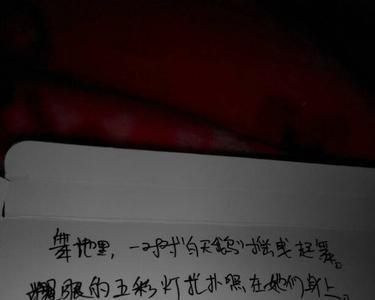 舞池里，一对对“白天鹅”摇曳起舞。
耀眼的五彩灯光扑照在她们身上。